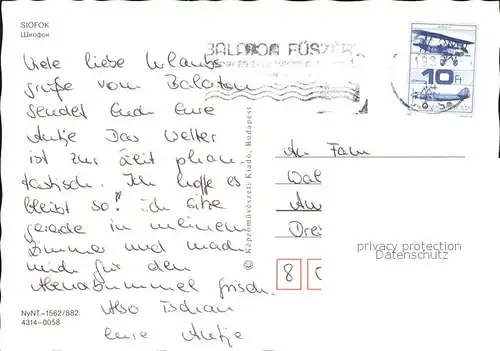 SIÓFOK
Шиофок
BALATON FÜSZÉR
10 Ft
Viele liebe Urlaubs
grüße vom Balaton
sendet Euch Eure
Antje Das Wetter
ist zur Zeit phan-
tastisch. Ich hoffe es
bleibt so! Ich sitze
gerade in meinem
Zimmer und mach
mich für den
Abendbummel frisch.
Also Tschau
Eure Antje
© Képzőművészeti Kiadó, Budapest
An Fam
Wal
Am
Drei
8
privacy protection
Datenschutz
NyNT.–1562/882.
4314-0058